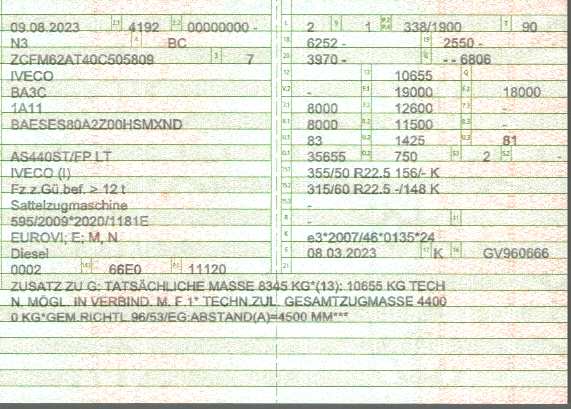 09.08.2023 2.1 4192 2.2 00000000 -
N3 BC
ZCFM62AT40C505809 3 7
IVECO
BA3C
1A11
BAESES80A2Z00HSMXND
AS440ST/FP LT
IVECO (I)
Fz.z.Gü.bef. > 12 t
Sattelzugmaschine
595/2009*2020/1181E
EUROVI; E; M, N
Diesel
0002 66E0 11120
2 1 338/1900 90
6252 - 2550 -
3970 - - - 6806
10655
- 19000 18000
8000 12600 -
8000 11500 -
83 1425 81
35655 750 2 -
355/50 R22.5 156/- K
315/60 R22.5 -/148 K
-
-
e3*2007/46*0135*24
08.03.2023 K GV960666
ZUSATZ ZU G: TATSÄCHLICHE MASSE 8345 KG*(13): 10655 KG TECH
N. MÖGL. IN VERBIND. M. F.1* TECHN.ZUL. GESAMTZUGMASSE 4400
0 KG*GEM.RICHTL.96/53/EG:ABSTAND(A)=4500 MM***